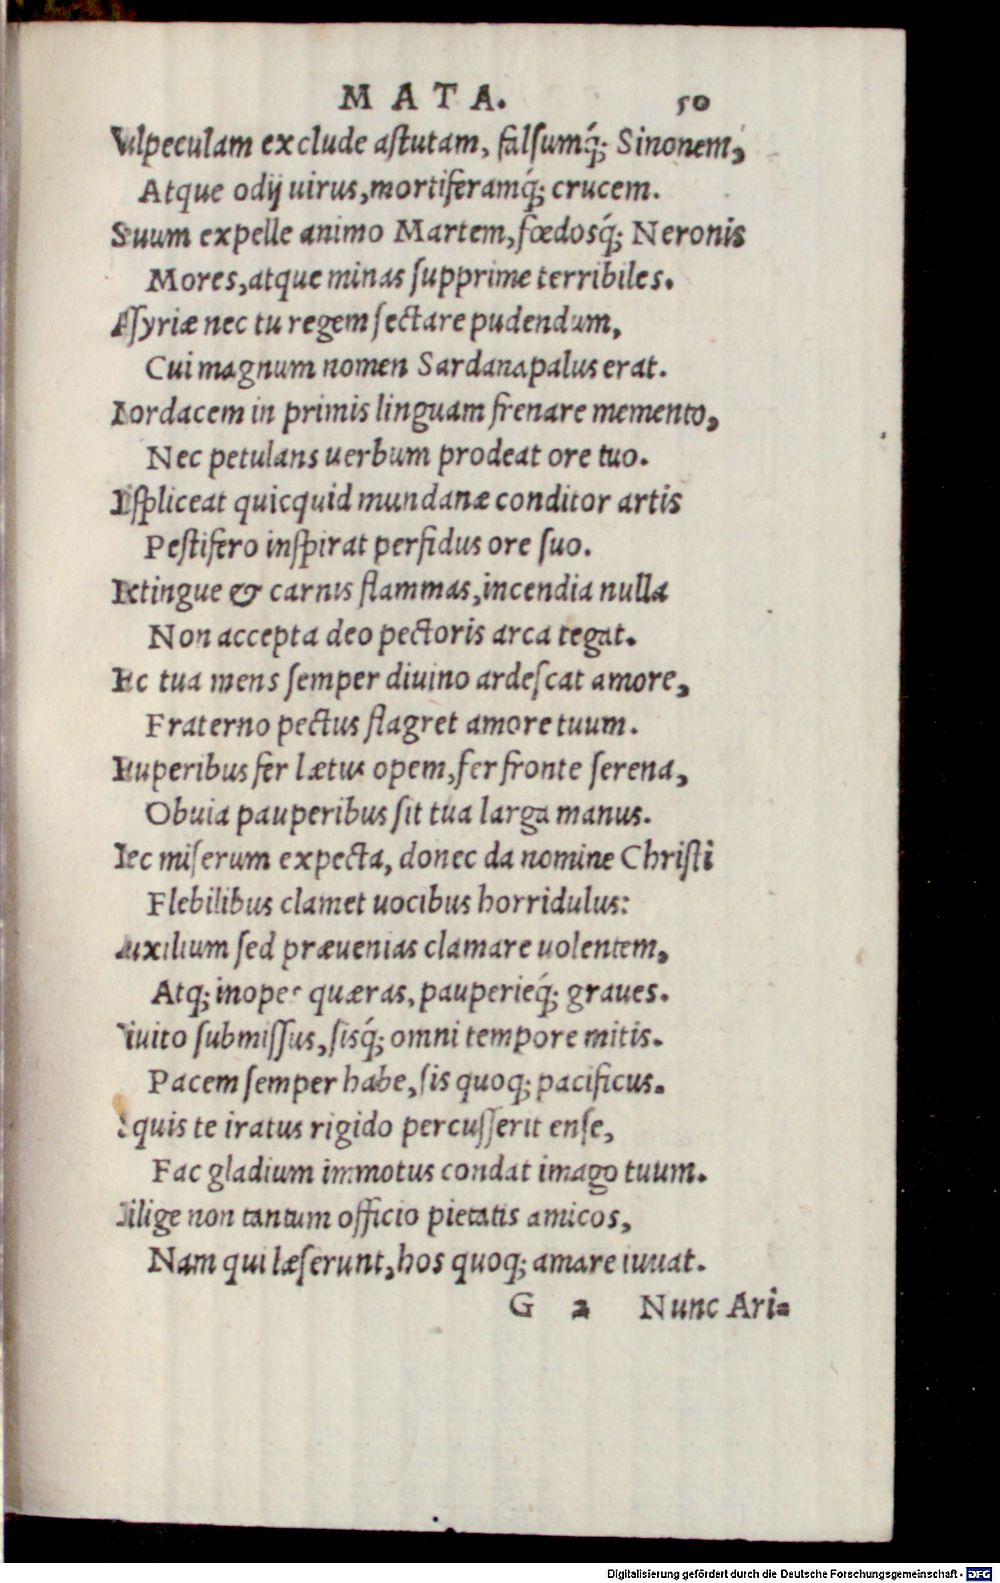 MATA. 50
Vulpeculam exclude astutam, falsumq́; Sinonem,
Atque odij uirus, mortiferamq́; crucem.
Sæuum expelle animo Martem, fœdosq́; Neronis
Mores, atque minas supprime terribiles.
Assyriæ nec tu regem sectare pudendum,
Cui magnum nomen Sardanapalus erat.
Mordacem in primis linguam frenare memento,
Nec petulans uerbum prodeat ore tuo.
Displiceat quicquid mundanæ conditor artis
Pestifero inspirat perfidus ore suo.
Extingue & carnis flammas, incendia nulla
Non accepta deo pectoris arca tegat.
tua mens semper diuino ardescat amore,
Fraterno pectus flagret amore tuum.
Pauperibus fer lætus opem, fer fronte serena,
Obuia pauperibus sit tua larga manus.
Nec miserum expecta, donec da nomine Christi
Flebilibus clamet uocibus horridulus:
Auxilium sed præuenias clamare uolentem,
Atq; inopes quæras, pauperieq́; graues.
Viuito submissus, sisq́; omni tempore mitis.
Pacem semper habe, sis quoq; pacificus.
quis te iratus rigido percusserit ense,
Fac gladium immotus condat imago tuum.
Dilige non tantum officio pietatis amicos,
Nam qui læserunt, hos quoq; amare iuuat.
G 2 Nunc Ari-
Digitalisierung gefördert durch die Deutsche Forschungsgemeinschaft - DFG